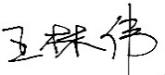 王林伟